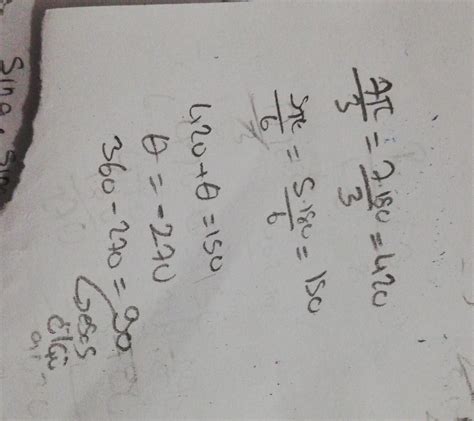 7π/3 = 7.180/3 = 420
5π/6 = 5.180/6 = 150
420 + θ = 150
θ = -270
360 - 270 = 90
esas
ölçü
Sina.